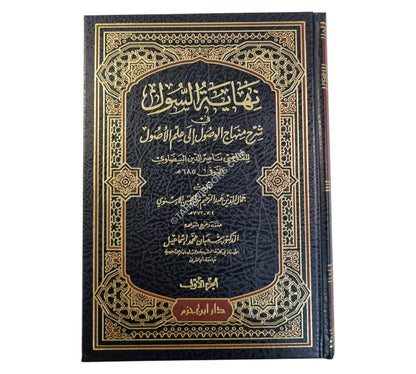 نهاية السول
في
شرح منهاج الوصول إلى علم الأصول
للقاضي ناصر الدين البيضاوي
المتوفى ٦٨٥هـ
جمال الدين عبد الرحيم بن الحسن الإسنوي
٧٠٤ - ٧٧٢هـ
حققه وخرج شواهده
الدكتور شعبان محمد إسماعيل
الجزء الأول
دار ابن حزم